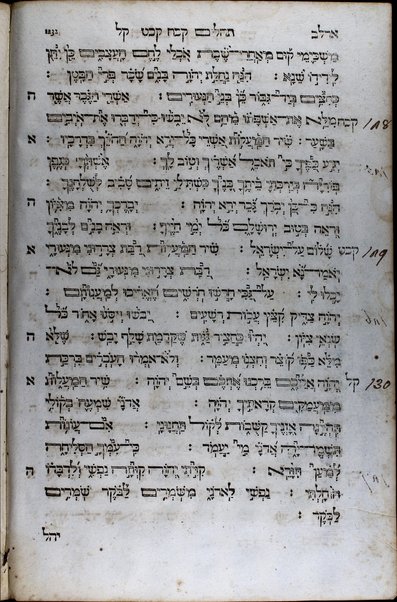 1232 תהלים קכח קכט קל ארלב
משכימי קום מאחרי שבת אכלי לחם העצבים כן יתן
לידידו שנא : הנה נחלת יהוה בנים שכר פרי הבטן :
כחצים ביד גבור כן בני הנעורים : אשרי הגבר אשר ה
128 קכח מלא את אשפתו מהם לא יבשו כי ידברו את אויבים
בשער : שיר המעלות אשרי כל ירא יהוה ההלך בדרכיו : א
יגיע כפיך כי תאכל אשריך וטוב לך : אשתך כגפן
פריה בירכתי ביתך בניך כשתלי זיתים סביב לשלחנך :
הנה כי כן יברך גבר ירא יהוה : יברכך יהוה מציון ה
וראה בטוב ירושלם כל ימי חייך : וראה בנים לבניך
129 קכט שלום על ישראל : שיר המעלות רבת צררוני מנעורי א
יאמר נא ישראל : רבת צררוני מנעורי גם לא
יכלו לי : על גבי חרשו חרשים האריכו למענותם :
יהוה צדיק קצץ עבות רשעים : יבשו ויסגו אחור כל
שנאי ציון : יהיו כחציר גגות שקדמת שלף יבש : שלא ה
מלא כפו קוצר וחצנו מעמר : ולא אמרו העברים ברכת
130 קל יהוה אליכם ברכנו אתכם בשם יהוה : שיר המעלות א
ממעמקים קראתיך יהוה : אדני שמעה בקולי
תהיינה אזניך קשבות לקול תחנוני : אם עונות
תשמר יה אדני מי יעמד : כי עמך הסליחה
למען תורא : קויתי יהוה קותה נפשי ולדברו ה
הוחלתי : נפשי לאדני משמרים לבקר שמרים
לבקר :
יחל